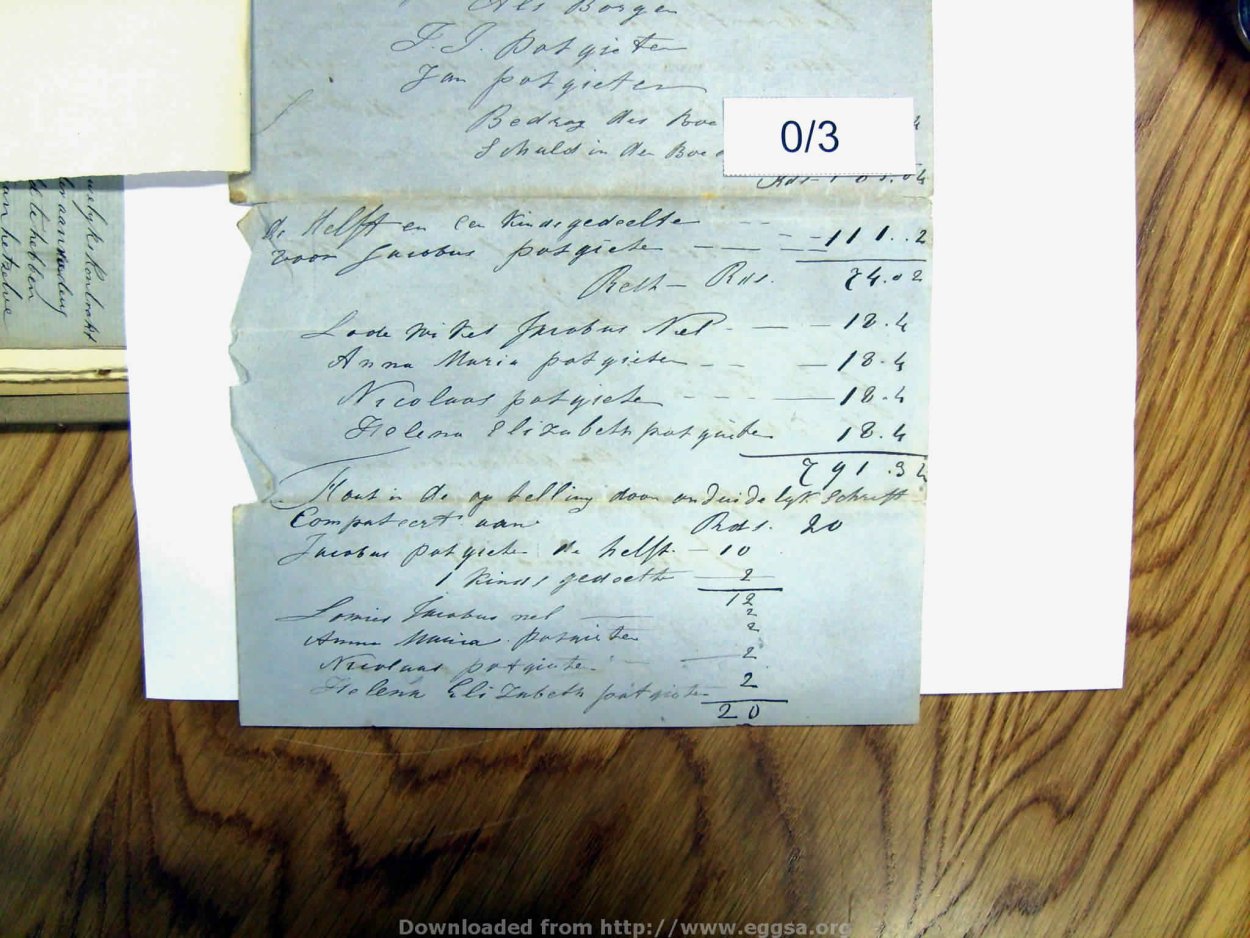 Als Borgen
F. J. Potgieter
Jan potgieter
Bedrag des Boe
Schuld in den Boe
0/3
Rds
de Helft en een kindsgedeelte - - - - 111..2
voor Jacobus potgieter
Rest - Rds. 74.02
Lodewikes Jacobus Nel - 18.4
Anna Maria potgieter - - 18.4
Nicolaas potgieter - - - - 18.4
Helena Elizabeth potgieter 18.4
791.34
Fout in de optelling door onduidelyk Schrift
Compateert aan Rds. 20
Jacobus potgieter de helft - 10
1 kinds gedeelte 2
12
Jacobus nel 2
Anna Maria potgieter 2
Nicolaas potgieter 2
Helena Elizabeth potgieter 2
20
aan
Downloaded from http://www.eggsa.org